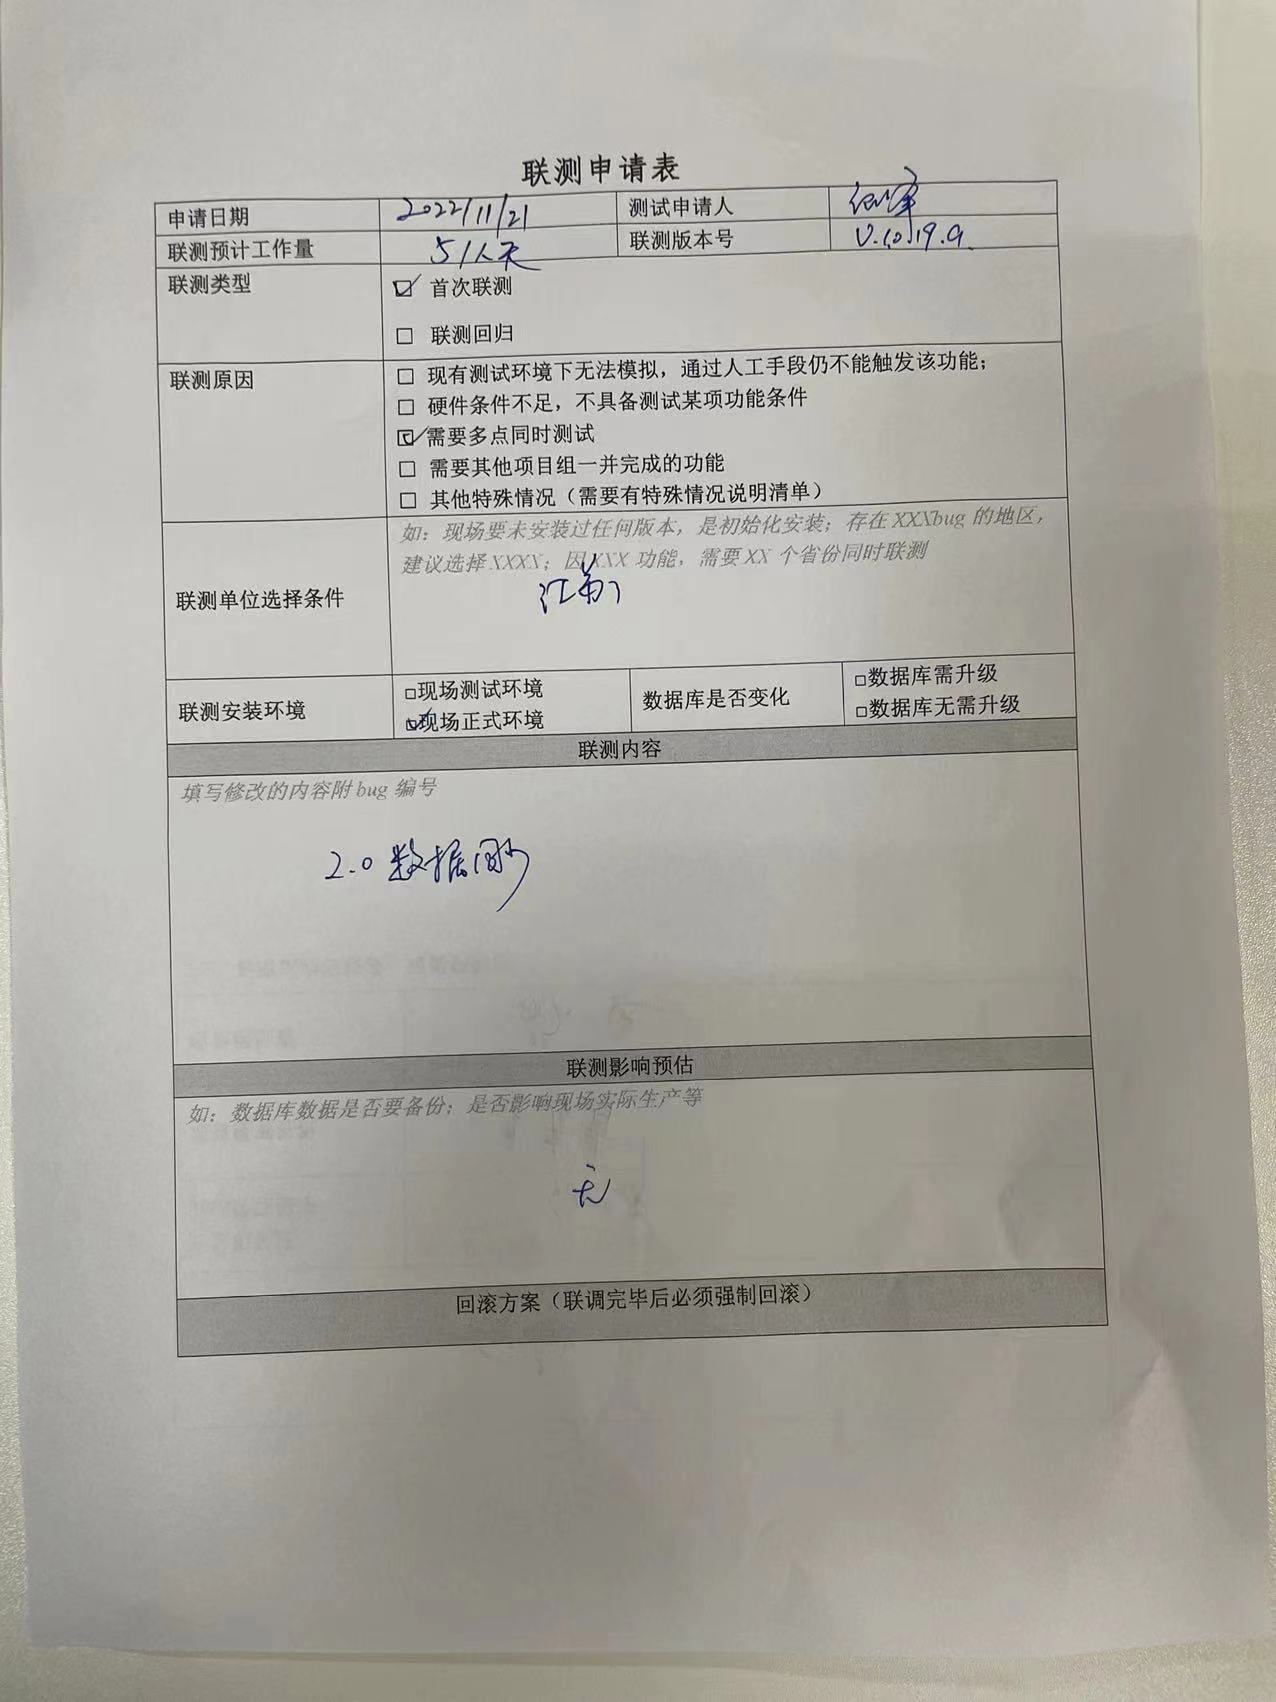 联测申请表
申请日期 2022/11/21 测试申请人
联测预计工作量 5人天 联测版本号 V.10.19.9.
联测类型 ☑ 首次联测
□ 联测回归
联测原因 □ 现有测试环境下无法模拟，通过人工手段仍不能触发该功能；
□ 硬件条件不足，不具备测试某项功能条件
☑ 需要多点同时测试
□ 需要其他项目组一并完成的功能
□ 其他特殊情况（需要有特殊情况说明清单）
如：现场要未安装过任何版本，是初始化安装；存在XXXbug的地区，
建议选择XXXX；因XXX功能，需要XX个省份同时联测
联测单位选择条件
联测安装环境 □现场测试环境 数据库是否变化 □数据库需升级
☑现场正式环境 □数据库无需升级
联测内容
填写修改的内容附bug编号
2.0 数据同步
联测影响预估
如：数据库数据是否要备份；是否影响现场实际生产等
无
回滚方案（联调完毕后必须强制回滚）